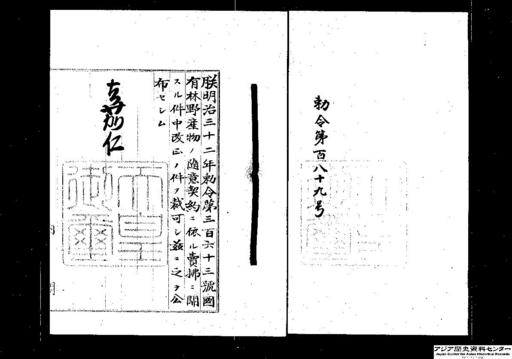 勅令第百八十九号
朕明治三十二年勅令第三百六十三號國
有林野産物ノ随意契約ニ依ル賣拂ニ關
スル件中改正ノ件ヲ裁可シ茲ニ之ヲ公
布セシム
嘉仁
天皇
御璽
アジア歴史資料センター
Japan Center for Asian Historical Records